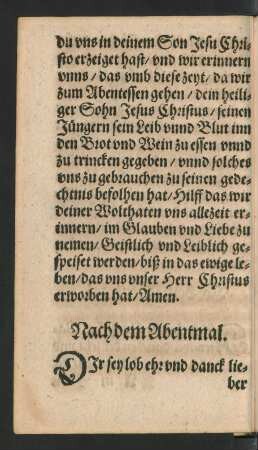 du vns in deinem Son Jesu Chri-
sto erzeiget hast/ vnd wir erinnern
vnns/ das vmb diese zeyt/ da wir
zum Abentessen gehen/ dein heili-
ger Sohn Jesus Christus/ seinen
Jüngern sein Leib vnnd Blut inn
den Brot vnd Wein zu essen vnnd
zu trincken gegeben/ vnnd solches
vns zu gebrauchen zu seinen gede-
chtnis befolhen hat/ Hilff das wir
deiner Wolthaten vns allezeit er-
innern/ im Glauben vnd Liebe zu
nemen/ Geistlich vnd Leiblich ge-
speiset werden/ biß in das ewige le-
ben/ das vns vnser Herr Christus
erworben hat/ Amen.
Nach dem Abentmal.
DIr sey lob ehr vnd danck lie-
ber